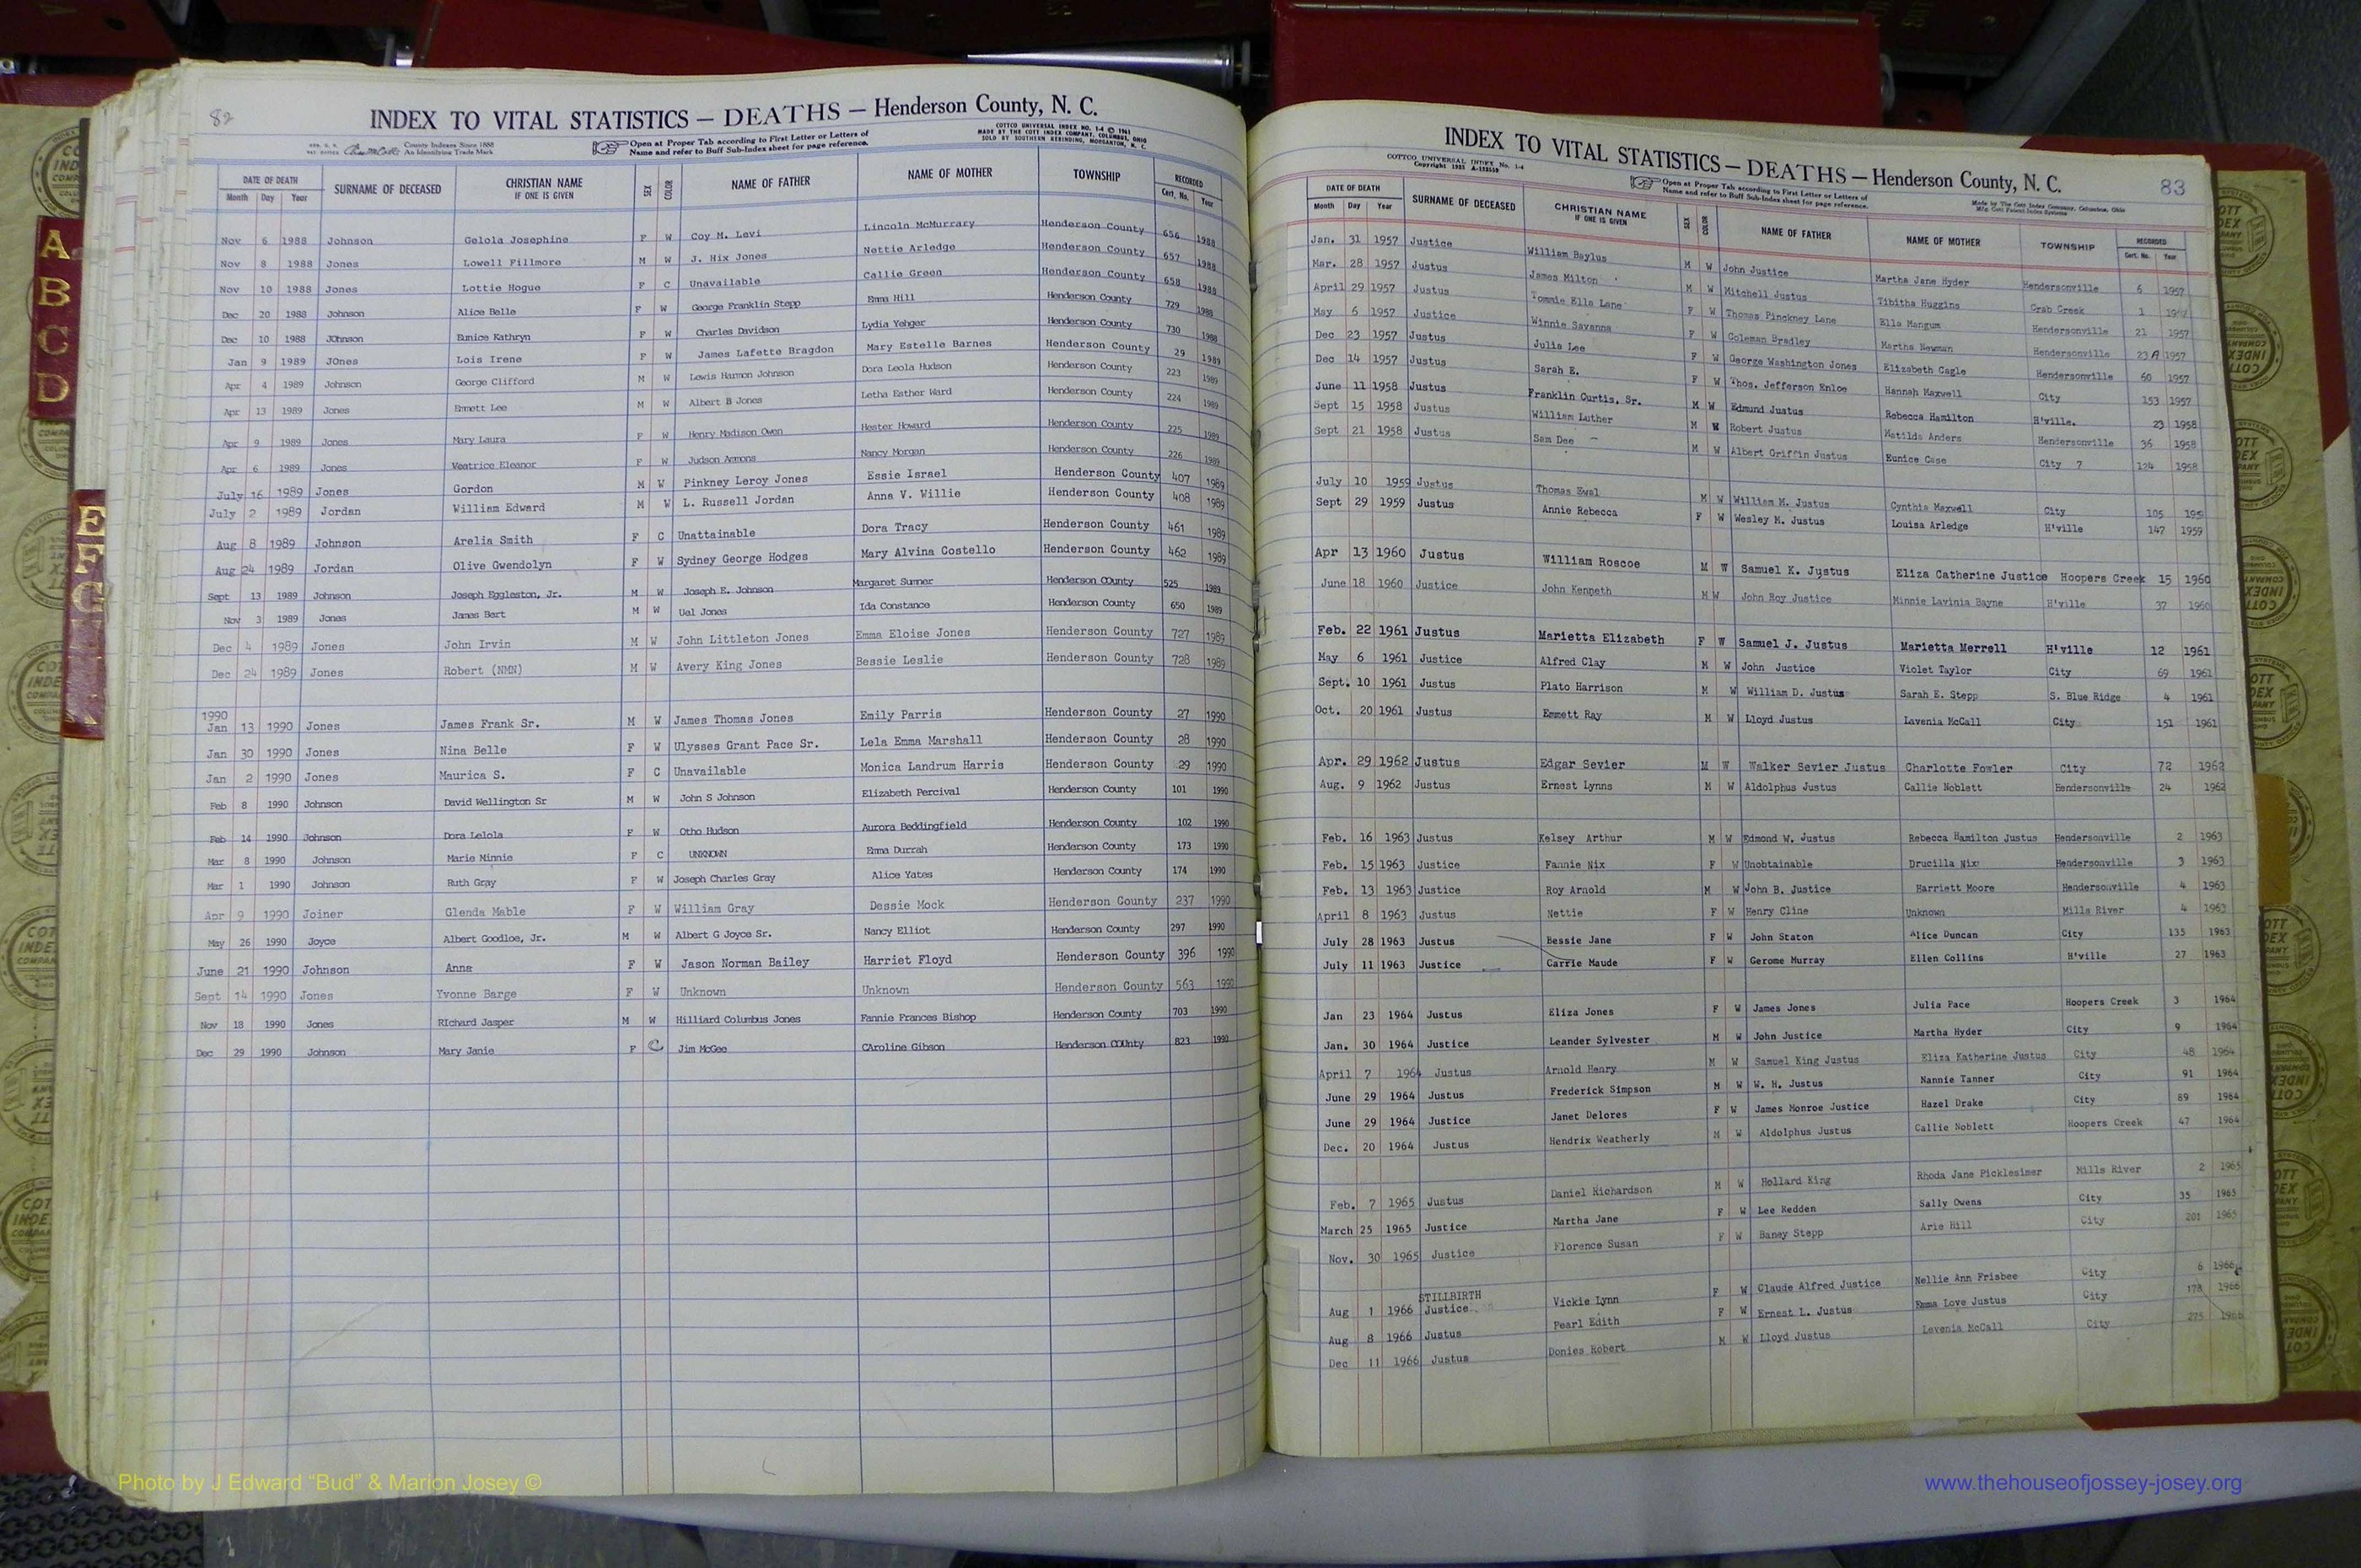 82
INDEX TO VITAL STATISTICS — DEATHS — Henderson County, N. C.
COTTCO UNIVERSAL INDEX NO. 1-4 © 1961
MADE BY THE COTT INDEX COMPANY, COLUMBUS, OHIO
SOLD BY SOUTHERN REBINDING, MORGANTON, N. C.
County Indexes Since 1888
An Identifying Trade Mark
Open at Proper Tab according to First Letter or Letters of
Name and refer to Buff Sub-Index sheet for page reference.
DATE OF DEATH SURNAME OF DECEASED CHRISTIAN NAME IF ONE IS GIVEN SEX COLOR NAME OF FATHER NAME OF MOTHER TOWNSHIP RECORDED
Month Day Year Cert. No. Year
Nov 6 1988 Johnson Gelola Josephine F W Coy M. Levi Lincoln McMurrary Henderson County 656 1988
Nov 8 1988 Jones Lowell Fillmore M W J. Hix Jones Nettie Arledge Henderson County 657 1988
Nov 10 1988 Jones Lottie Hogue F C Unavailable Callie Green Henderson County 658 1988
Dec 20 1988 Johnson Alice Belle F W George Franklin Stepp Emma Hill Henderson County 729 1988
Dec 10 1988 JOhnson Eunice Kathryn F W Charles Davidson Lydia Yehger Henderson County 730 1988
Jan 9 1989 JOnes Lois Irene F W James Lafette Bragdon Mary Estelle Barnes Henderson County 29 1989
Apr 4 1989 Johnson George Clifford M W Lewis Harmon Johnson Dora Leola Hudson Henderson County 223 1989
Apr 13 1989 Jones Emmett Lee M W Albert B Jones Letha Esther Ward Henderson County 224 1989
Apr 9 1989 Jones Mary Laura F W Henry Madison Owen Hester Howard Henderson County 225 1989
Apr 6 1989 Jones Veatrice Eleanor F W Judson Ammons Nancy Morgan Henderson County 226 1989
July 16 1989 Jones Gordon M W Pinkney Leroy Jones Essie Israel Henderson County 407 1989
July 2 1989 Jordan William Edward M W L. Russell Jordan Anna V. Willie Henderson County 408 1989
Aug 8 1989 Johnson Arelia Smith F C Unattainable Dora Tracy Henderson County 461 1989
Aug 24 1989 Jordan Olive Gwendolyn F W Sydney George Hodges Mary Alvina Costello Henderson County 462 1989
Sept 13 1989 Johnson Joseph Eggleston, Jr. M W Joseph E. Johnson Margaret Sumner Henderson COunty 525 1989
Nov 3 1989 Jones James Bert M W Ual Jones Ida Constance Henderson County 650 1989
Dec 4 1989 Jones John Irvin M W John Littleton Jones Emma Eloise Jones Henderson County 727 1989
Dec 24 1989 Jones Robert (NMN) M W Avery King Jones Bessie Leslie Henderson County 728 1989
1990
Jan 13 1990 Jones James Frank Sr. M W James Thomas Jones Emily Parris Henderson County 27 1990
Jan 30 1990 Jones Nina Belle F W Ulysses Grant Pace Sr. Lela Emma Marshall Henderson County 28 1990
Jan 2 1990 Jones Maurica S. F C Unavailable Monica Landrum Harris Henderson County 29 1990
Feb 8 1990 Johnson David Wellington Sr M W John S Johnson Elizabeth Percival Henderson County 101 1990
Feb 14 1990 Johnson Dora Lelola F W Otho Hudson Aurora Beddingfield Henderson County 102 1990
Mar 8 1990 Johnson Marie Minnie F C UNKNOWN Emma Durrah Henderson County 173 1990
Mar 1 1990 Johnson Ruth Gray F W Joseph Charles Gray Alice Yates Henderson County 174 1990
Apr 9 1990 Joiner Glenda Mable F W William Gray Dessie Mock Henderson County 237 1990
May 26 1990 Joyce Albert Goodloe, Jr. M W Albert G Joyce Sr. Nancy Elliot Henderson County 297 1990
June 21 1990 Johnson Anna F W Jason Norman Bailey Harriet Floyd Henderson County 396 1990
Sept 14 1990 Jones Yvonne Barge F W Unknown Unknown Henderson County 563 1990
Nov 18 1990 Jones RIchard Jasper M W Hilliard Columbus Jones Fannie Frances Bishop Henderson County 703 1990
Dec 29 1990 Johnson Mary Janie F C Jim McGee CAroline Gibson Henderson COUnty 823 1990
A
B
C
D
E
F
G
INDEX TO VITAL STATISTICS — DEATHS — Henderson County, N. C.
83
COTTCO UNIVERSAL INDEX No. 1-4
Open at Proper Tab according to First Letter or Letters of
Name and refer to Buff Sub-Index sheet for page reference.
Made by The Cott Index Company, Columbus, Ohio
DATE OF DEATH SURNAME OF DECEASED CHRISTIAN NAME IF ONE IS GIVEN SEX COLOR NAME OF FATHER NAME OF MOTHER TOWNSHIP RECORDED
Month Day Year Cert. No. Year
Jan. 31 1957 Justice William Baylus M W John Justice Martha Jane Hyder Hendersonville 6 1957
Mar. 28 1957 Justus James Milton M W Mitchell Justus Tibitha Huggins Crab Creek 1 1957
April 29 1957 Justus Tommie Ella Lane F W Thomas Pinckney Lane Ella Mangum Hendersonville 21 1957
May 6 1957 Justice Winnie Savanna F W Coleman Bradley Martha Newman Hendersonville 23 A 1957
Dec 23 1957 Justus Julia Lee F W George Washington Jones Elizabeth Cagle Hendersonville 60 1957
Dec 14 1957 Justus Sarah E. F W Thos. Jefferson Enloe Hannah Maxwell City 153 1957
June 11 1958 Justus Franklin Curtis, Sr. M W Edmund Justus Rebecca Hamilton H'ville. 23 1958
Sept 15 1958 Justus William Luther M W Robert Justus Matilda Anders Hendersonville 36 1958
Sept 21 1958 Justus Sam Dee M W Albert Griffin Justus Eunice Case City 7 124 1958
July 10 1959 Justus Thomas Ewal M W William M. Justus Cynthia Maxwell City 105 1959
Sept 29 1959 Justus Annie Rebecca F W Wesley M. Justus Louisa Arledge H'ville 147 1959
Apr 13 1960 Justus William Roscoe M W Samuel K. Justus Eliza Catherine Justice Hoopers Creek 15 1960
June 18 1960 Justice John Kenneth M W John Roy Justice Minnie Lavinia Bayne H'ville 37 1960
Feb. 22 1961 Justus Marietta Elizabeth F W Samuel J. Justus Marietta Merrell H'ville 12 1961
May 6 1961 Justice Alfred Clay M W John Justice Violet Taylor City 69 1961
Sept. 10 1961 Justus Plato Harrison M W William D. Justus Sarah E. Stepp S. Blue Ridge 4 1961
Oct. 20 1961 Justus Emmett Ray M W Lloyd Justus Lavenia McCall City 151 1961
Apr. 29 1962 Justus Edgar Sevier M W Walker Sevier Justus Charlotte Fowler City 72 1962
Aug. 9 1962 Justus Ernest Lynns M W Aldolphus Justus Callie Noblett Hendersonville 24 1962
Feb. 16 1963 Justus Kelsey Arthur M W Edmond W. Justus Rebecca Hamilton Justus Hendersonville 2 1963
Feb. 15 1963 Justice Fannie Nix F W Unobtainable Drucilla Nix Hendersonville 3 1963
Feb. 13 1963 Justice Roy Arnold M W John B. Justice Harriett Moore Hendersonville 4 1963
April 8 1963 Justus Nettie F W Henry Cline Unknown Mills River 4 1963
July 28 1963 Justus Bessie Jane F W John Staton Alice Duncan City 135 1963
July 11 1963 Justice Carrie Maude F W Gerome Murray Ellen Collins H'ville 27 1963
Jan 23 1964 Justus Eliza Jones F W James Jones Julia Pace Hoopers Creek 3 1964
Jan. 30 1964 Justice Leander Sylvester M W John Justice Martha Hyder City 9 1964
April 7 1964 Justus Arnold Henry M W Samuel King Justus Eliza Katherine Justus City 48 1964
June 29 1964 Justus Frederick Simpson M W W. H. Justus Nannie Tanner City 91 1964
June 29 1964 Justice Janet Delores F W James Monroe Justice Hazel Drake City 89 1964
Dec. 20 1964 Justus Hendrix Weatherly M W Aldolphus Justus Callie Noblett Hoopers Creek 47 1964
Feb. 7 1965 Justus Daniel Richardson M W Hollard King Rhoda Jane Picklesimer Mills River 2 1965
March 25 1965 Justice Martha Jane F W Lee Redden Sally Owens City 35 1965
Nov. 30 1965 Justice Florence Susan F W Baney Stepp Arie Hill City 201 1965
STILLBIRTH
Aug 1 1966 Justice Vickie Lynn F W Claude Alfred Justice Nellie Ann Frisbee City 6 1966
Aug 8 1966 Justus Pearl Edith F W Ernest L. Justus Emma Love Justus City 178 1966
Dec 11 1966 Justus Donies Robert M W Lloyd Justus Levenia McCall City 275 1966
Photo by J Edward “Bud” & Marion Josey ©
www.thehouseofjossey-josey.org